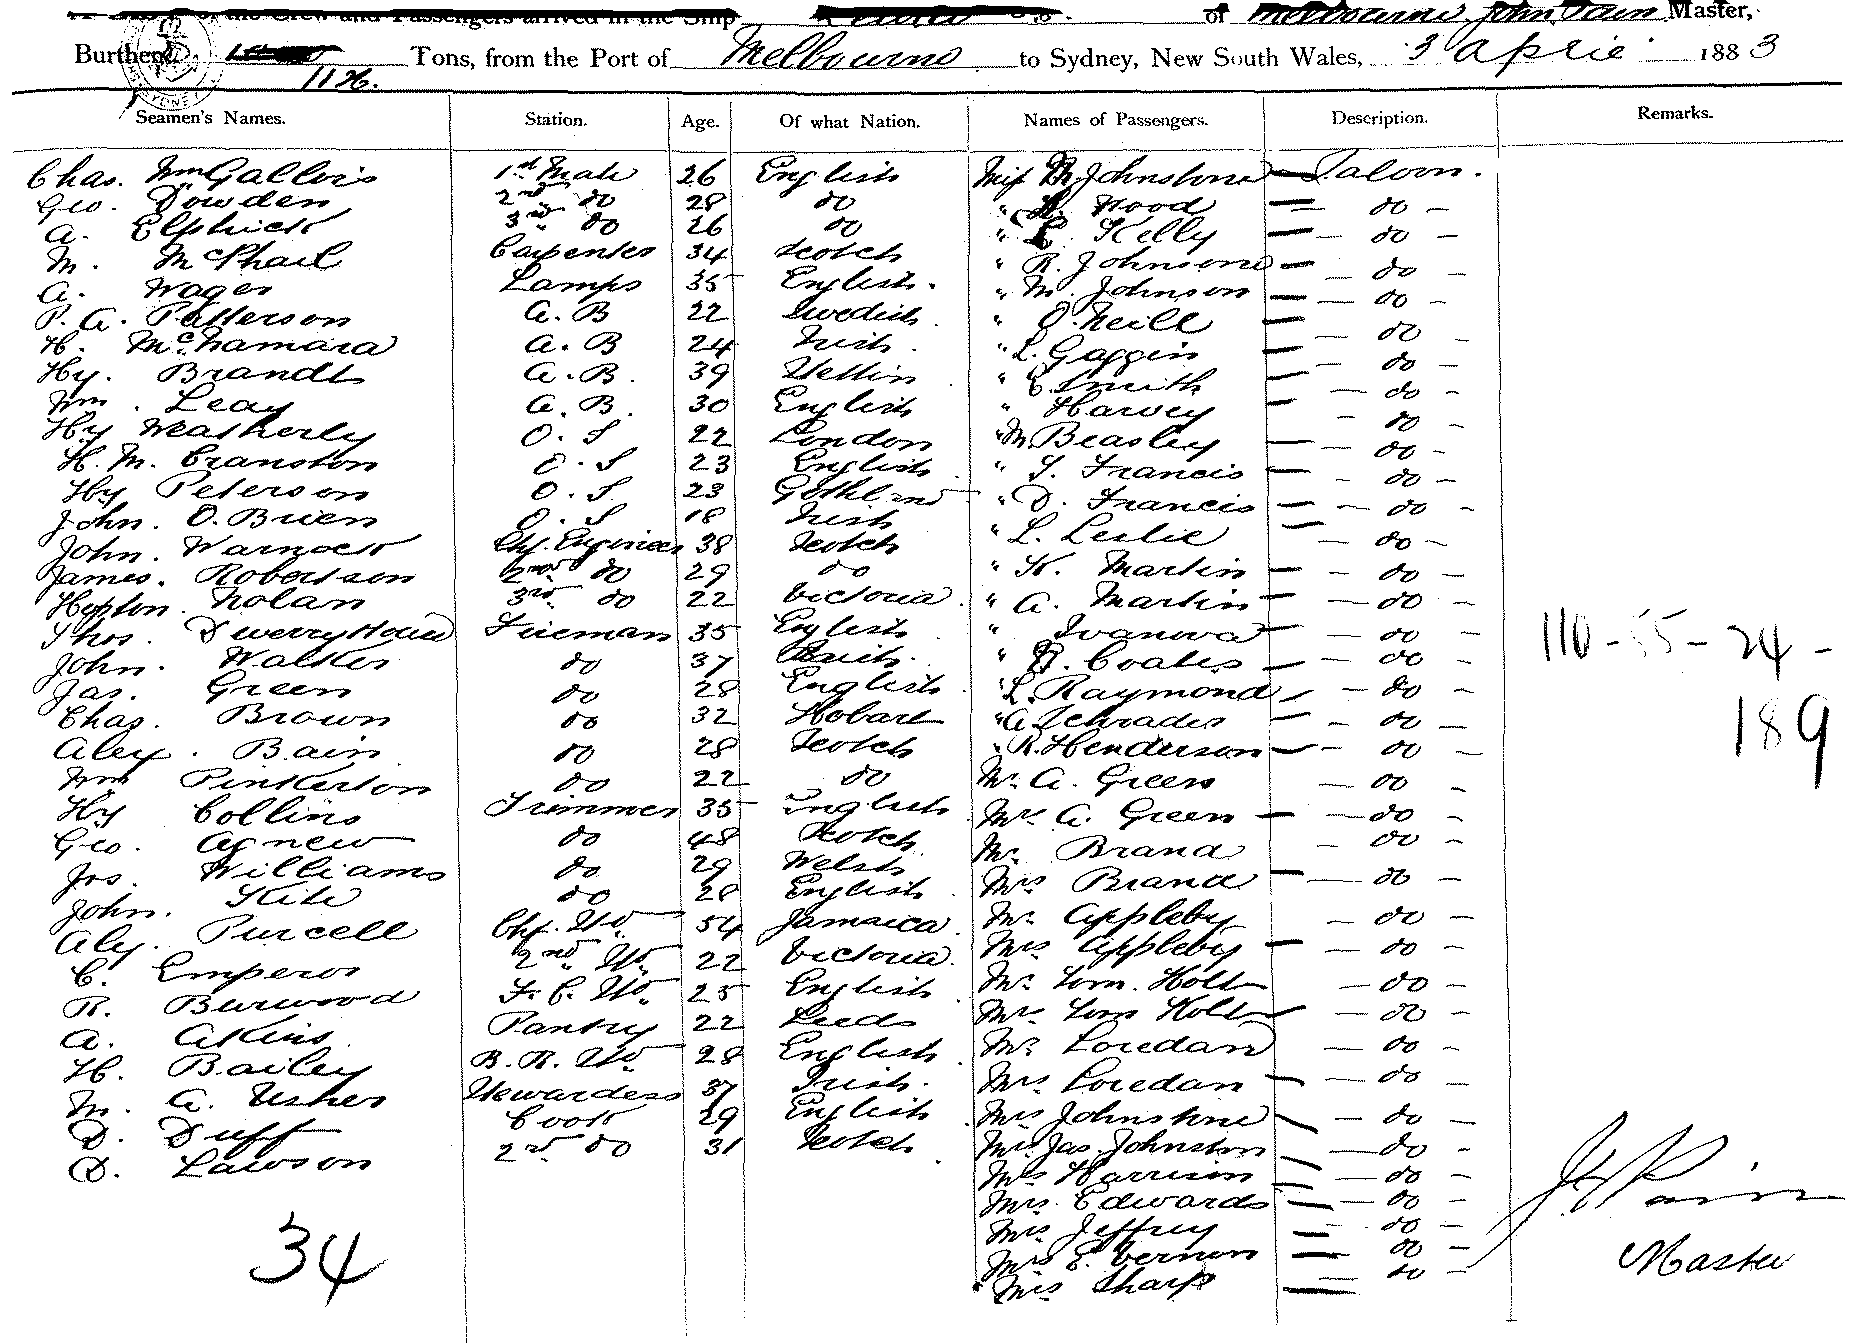 of the Crew and Passengers arrived in the Ship of Melbourne John Pain Master,
Burthen 1126. Tons, from the Port of Melbourne to Sydney, New South Wales, 3 April 1883
Seamen's Names. Station. Age. Of what Nation. Names of Passengers. Description. Remarks.
Chas. Wm Gallois 1st Mate 26 English Miss M Johnstone — Saloon.
Geo. Dowden 2nd do 28 do " Wood — do —
A. Elphick 3rd do 26 do " Kelly — do —
M. McPhail Carpenter 34 Scotch " R. Johnsone — do —
A. Wager Lamps 35 English. " M. Johnson — do —
P. A. Patterson A. B 22 Swedish " O.Neill — do —
H. McNamara A. B 24 Irish " L. Gaggin — do —
Hy. Brandt A. B. 39 Stettin " E Smith — do —
Wm. Leay A. B. 30 English " Harvey — do —
Hy Weatherly O. S 22 London " M Beasley — do —
H. M. Cranston O. S 23 English " S. Francis — do —
Hy Peterson O. S. 23 Gothland " D. Francis — do —
John. O. Brien O. S 18 Irish " L. Leslie — do —
John. Warnock Chf. Engineer 38 Scotch " K. Martin — do —
James. Robertson 2nd do 29 do " A. Martin — do —
Hypton. Nolan 3rd do 22 Victoria " Ivanova — do —
Thos. Dwerryhouse Fireman 35 English " Coates — do —
John. Walker do 37 " L. Raymond — do —
Jas. Green do 28 English " A Schrader — do —
Chas. Brown do 32 Hobart " R. Henderson — do —
Alex. Bain do 28 Scotch Mr. A. Green — do —
Wm Pinkerton do 22 do Mrs A. Green — do —
Hy Collins Trimmer 35 English Mr. Brand — do —
Geo. Agnew do 48 Scotch Mrs Brand — do —
Jos. Williams do 29 Welsh Mr. Appleby — do —
John. Kite do 28 English Mrs Appleby — do —
Aly. Purcell Chf. Std 54 Jamaica Mr. Tom. Holt — do —
C. Emperor 2nd " Std 22 Victoria. Mrs Tom Holt — do —
R. Burwood F. C. Std. 25 English Mr Loredan — do —
A. Atkins Pantry 22 Leeds Mrs. Loredan — do —
H. Bailey B. R. Std 28 English Mrs Johnstone — do —
M. A. Usher Stewardess 37 Irish. Mrs. Jas. Johnston — do —
D. Duff Cook 29 English Mrs Harrison — do —
D. Lawson 2nd do 31 Scotch Mrs. Edwards — do —
Mrs. Jeffrey — do —
Mrs E. Vernon — do —
Mrs Sharp — do —
34
110 - 55 - 24 -
189
Master